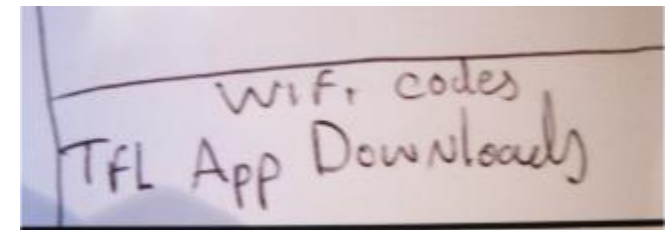 Wifi codes
TfL App Downloads